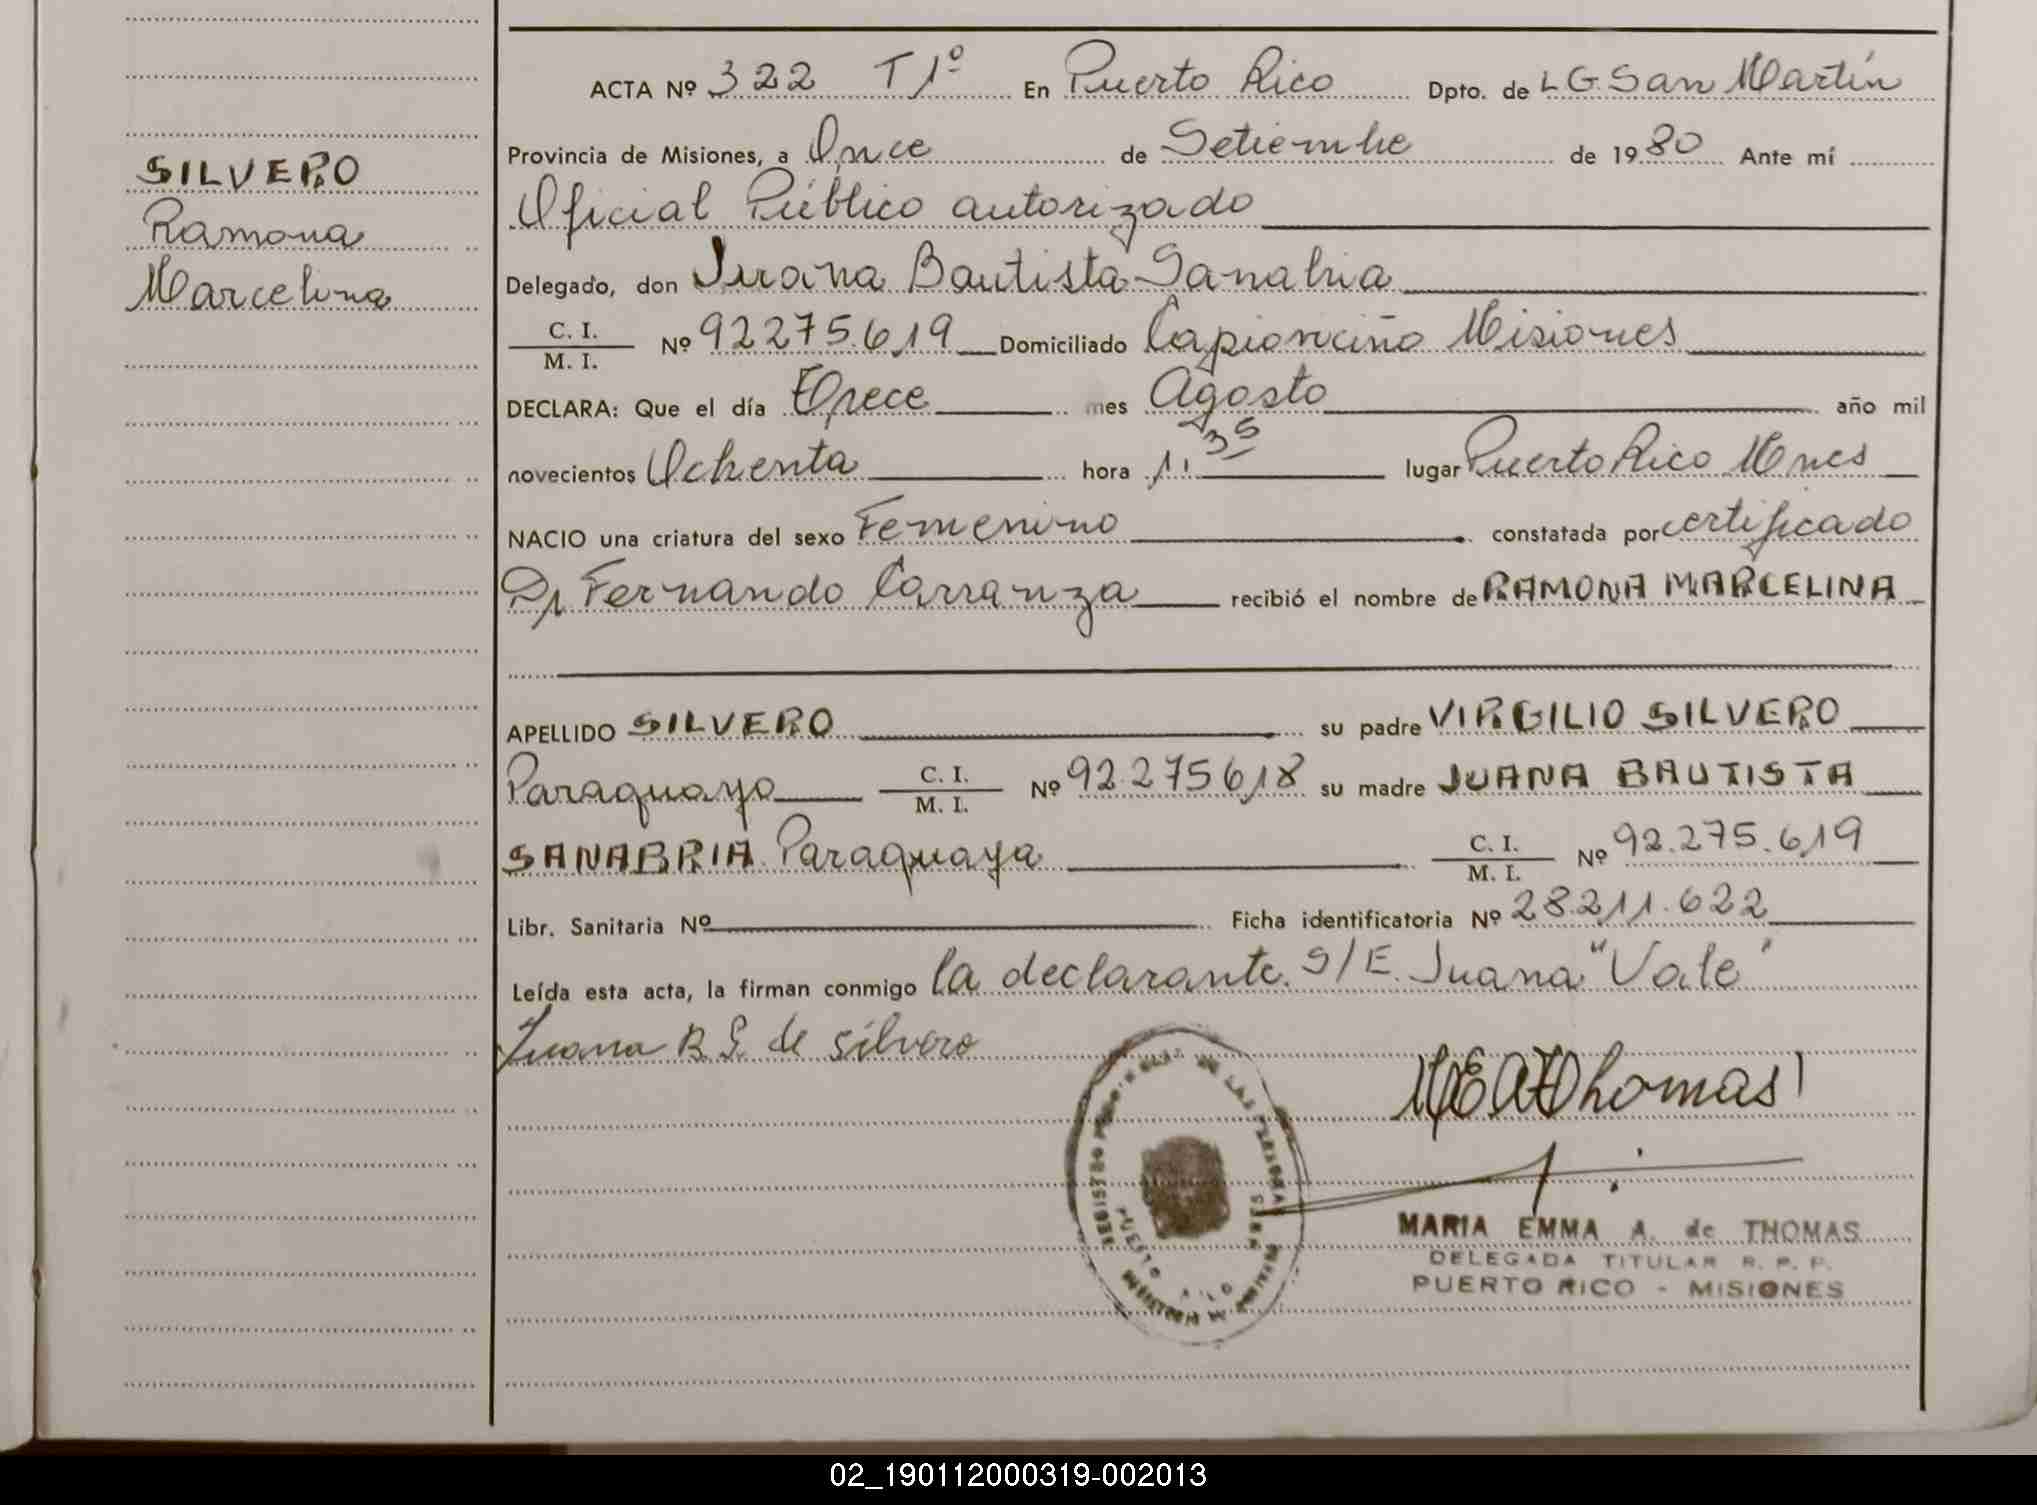 SILVERO
Ramona
Marcelina
ACTA Nº 322 T 1º En Puerto Rico Dpto. de L G. San Martín
Provincia de Misiones, a Once de Setiembre de 1980 Ante mí
Oficial Público autorizado
Delegado, don Juana Bautista Sanabria
C. I. / M. I. Nº 92.275.619 Domiciliado Capiovicino Misiones
DECLARA: Que el día Trece mes Agosto año mil
novecientos Ochenta hora 1:35 lugar Puerto Rico Mnes
NACIO una criatura del sexo Femenino constatada por certificado
Dr Fernando Carranza recibió el nombre de RAMONA MARCELINA
APELLIDO SILVERO su padre VIRGILIO SILVERO
Paraguayo C. I. / M. I. Nº 92.275618 su madre JUANA BAUTISTA
SANABRIA Paraguaya C. I. / M. I. Nº 92.275.619
Libr. Sanitaria Nº Ficha identificatoria Nº 28.211.622
Leída esta acta, la firman conmigo la declarante. S/E. Juana "Vale"
Juana B S. de Silvero
MEA Thomas
REGISTRO DE LAS PERSONAS
PUERTO RICO
MARIA EMMA A. de THOMAS
DELEGADA TITULAR R. P. P.
PUERTO RICO - MISIONES
02_190112000319-002013